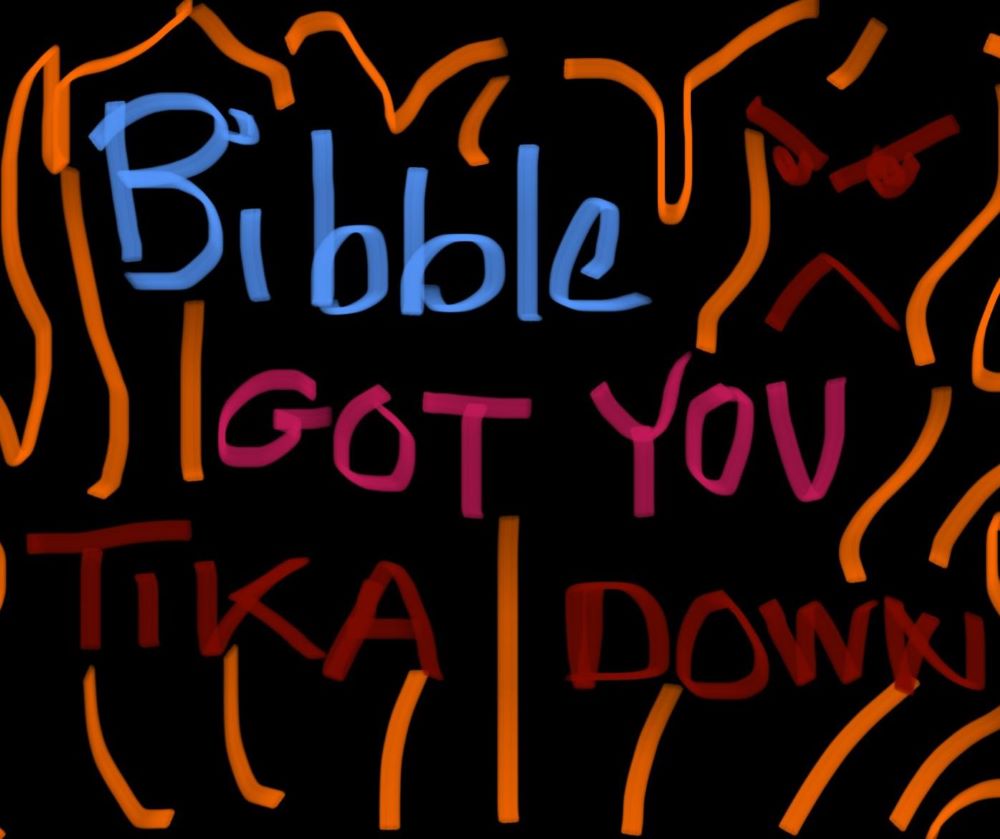 Bibble
GOT YOU
TIKA DOWN